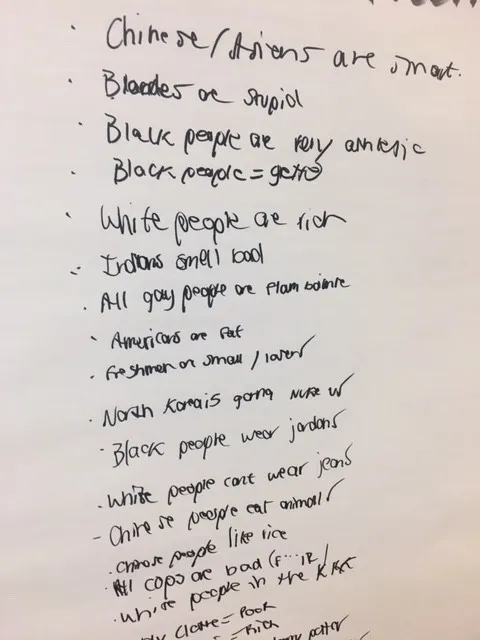 Chinese/Asians are smart.
Blondes are stupid
Black people are very athletic
Black people = getto
White people are rich
Indians smell bad
All gay people are flamboinre
Americans are fat
Freshmen are small /
North Korea is gonna nuke us
Black people wear jordans
White people cant wear jeans
Chinese people eat animals
Chinese people like rice
All cops are bad
White people in the KKK
= Poor
= Rich